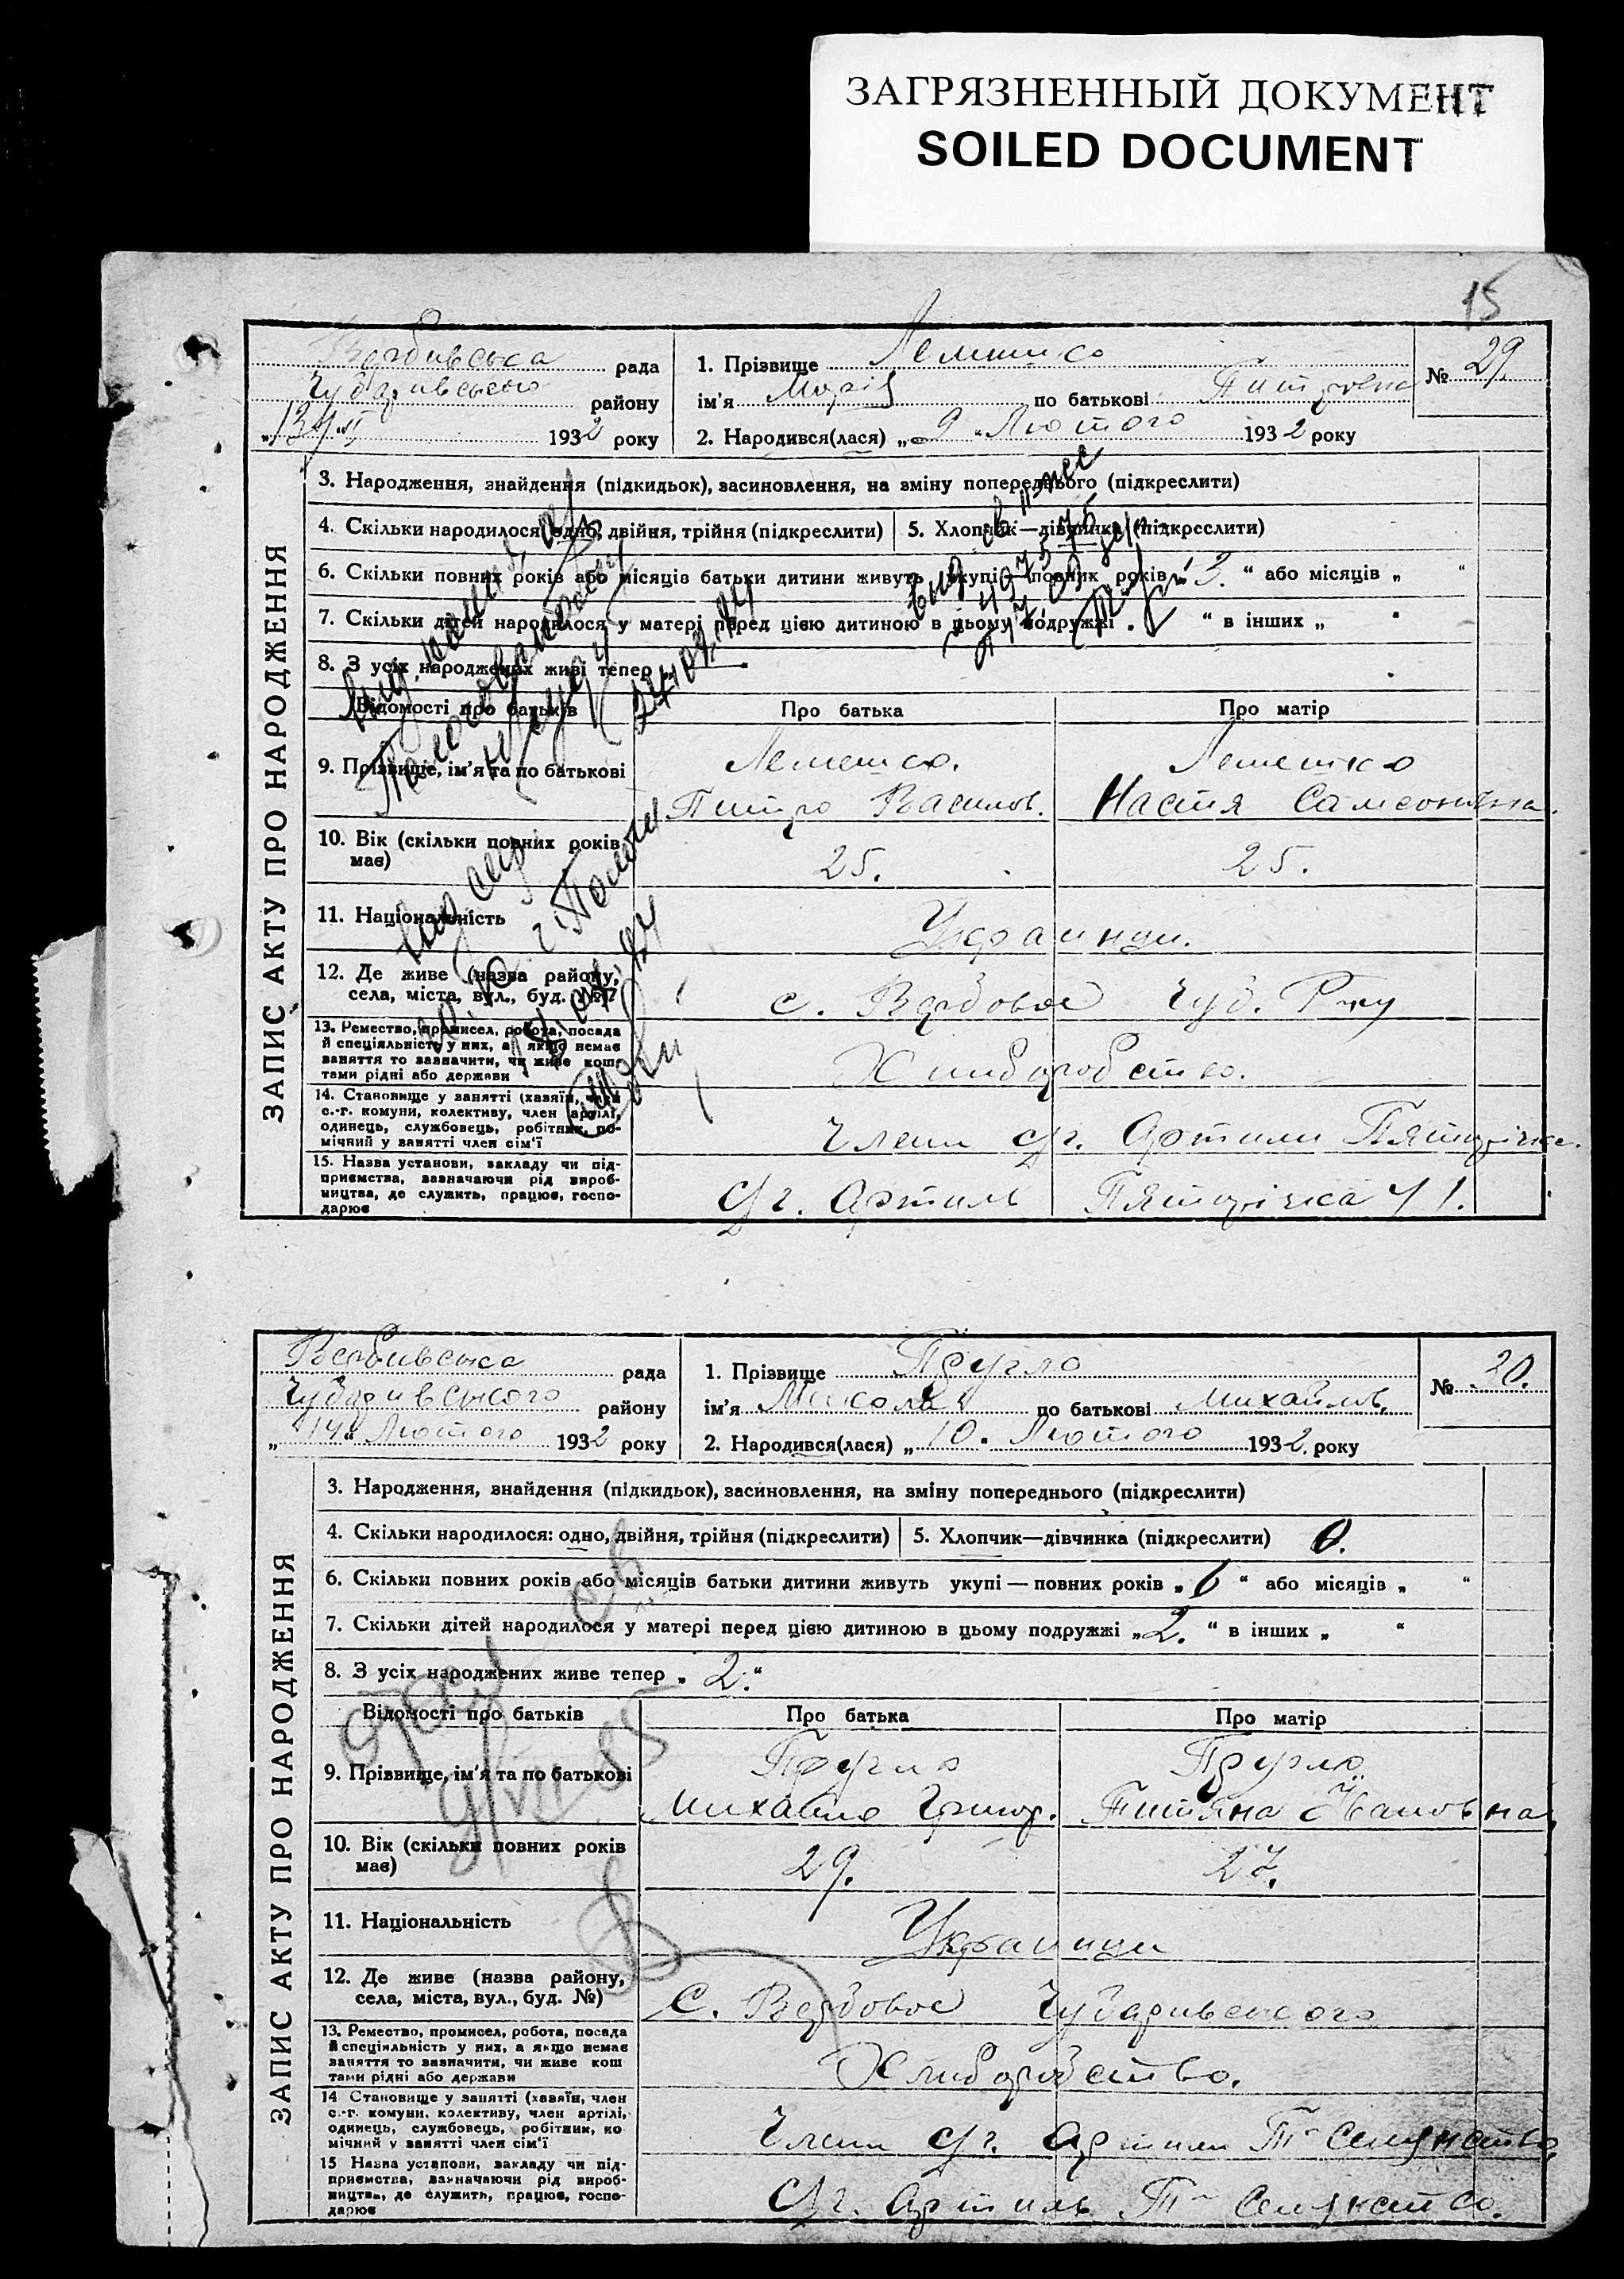 ЗАГРЯЗНЕННЫЙ ДОКУМЕНТ
SOILED DOCUMENT
15
Вербивська рада
Чубаривського району
1932 року
1. Прізвище Лемишко
ім'я Марія по батькові Пит ровна
2. Народився(лася) „9“ Лютого 1932 року
№ 29.
ЗАПИС АКТУ ПРО НАРОДЖЕННЯ
3. Народження, знайдення (підкидьок), засиновлення, на зміну попереднього (підкреслити)
4. Скільки народилося: одно, двійня, трійня (підкреслити)
5. Хлопчик—дівчинка (підкреслити)
6. Скільки повних років або місяців батьки дитини живуть укупі—повних років „3.“ або місяців „ “
7. Скільки дітей народилося у матері перед цією дитиною в цьому подружжі „ “ в інших „ “
8. З усіх народжених живі тепер „
24.04.84
Відомості про батьків
Про батька
Про матір
9. Прізвище, ім'я та по батькові
Лемешко.
Питро Василов.
Лемешко
Настя Самсоновна.
10. Вік (скільки повних років має)
25.
25.
11. Національність
Украинци.
12. Де живе (назва району,
села, міста, вул., буд. №)
с. Вербовое Чуб. Р-ну
13. Ремество, промисел, робота, посада
й спеціяльність у них, а якщо немає
заняття то зазначити, чи живе кош-
тами рідні або держави
Хлиборобство.
14. Становище у занятті (хазяїн, член
с.-г. комуни, колективу, член артілі,
одинець, службовець, робітник, по-
мічний у занятті член сім'ї
Члени с/г. Артили Пятирічка.
15. Назва установи, закладу чи під-
приємства, зазначаючи рід вироб-
ництва, де служить, працює, госпо-
дарює
С/г. Артиль Пятирічка Ч 1.
Вербивська рада
Чубаривського району
„14“ Лютого 1932 року
1. Прізвище Пругло
ім'я Микола по батькові Михайлов.
2. Народився(лася) „10. Лютого 1932. року
№ 30.
ЗАПИС АКТУ ПРО НАРОДЖЕННЯ
3. Народження, знайдення (підкидьок), засиновлення, на зміну попереднього (підкреслити)
4. Скільки народилося: одно, двійня, трійня (підкреслити)
5. Хлопчик—дівчинка (підкреслити) 0.
6. Скільки повних років або місяців батьки дитини живуть укупі — повних років „6“ або місяців „ “
7. Скільки дітей народилося у матері перед цією дитиною в цьому подружжі „2.“ в інших „ “
8. З усіх народжених живе тепер „2.“
Відомості про батьків
Про батька
Про матір
9. Прізвище, ім'я та по батькові
Пругло
Михайло Григор.
Пругло
Титяна Ивановна
10. Вік (скільки повних років має)
29.
27.
11. Національність
Украинци
12. Де живе (назва району,
села, міста, вул., буд. №)
С. Вербовое Чубаривського
13. Ремество, промисел, робота, посада
й спеціяльність у них, а якщо немає
заняття то зазначити, чи живе кош
тами рідні або держави
Хлиборобство.
14 Становище у занятті (хазяїн, член
с.-г. комуни, колективу, член артілі,
одинець, службовець, робітник, по
мічний у занятті член сім'ї
Члени с/г. Артили
15 Назва установи, закладу чи під-
приємства, зазначаючи рід вироб-
ництва, де служить, працює, госпо-
дарює
С/г. Артиль